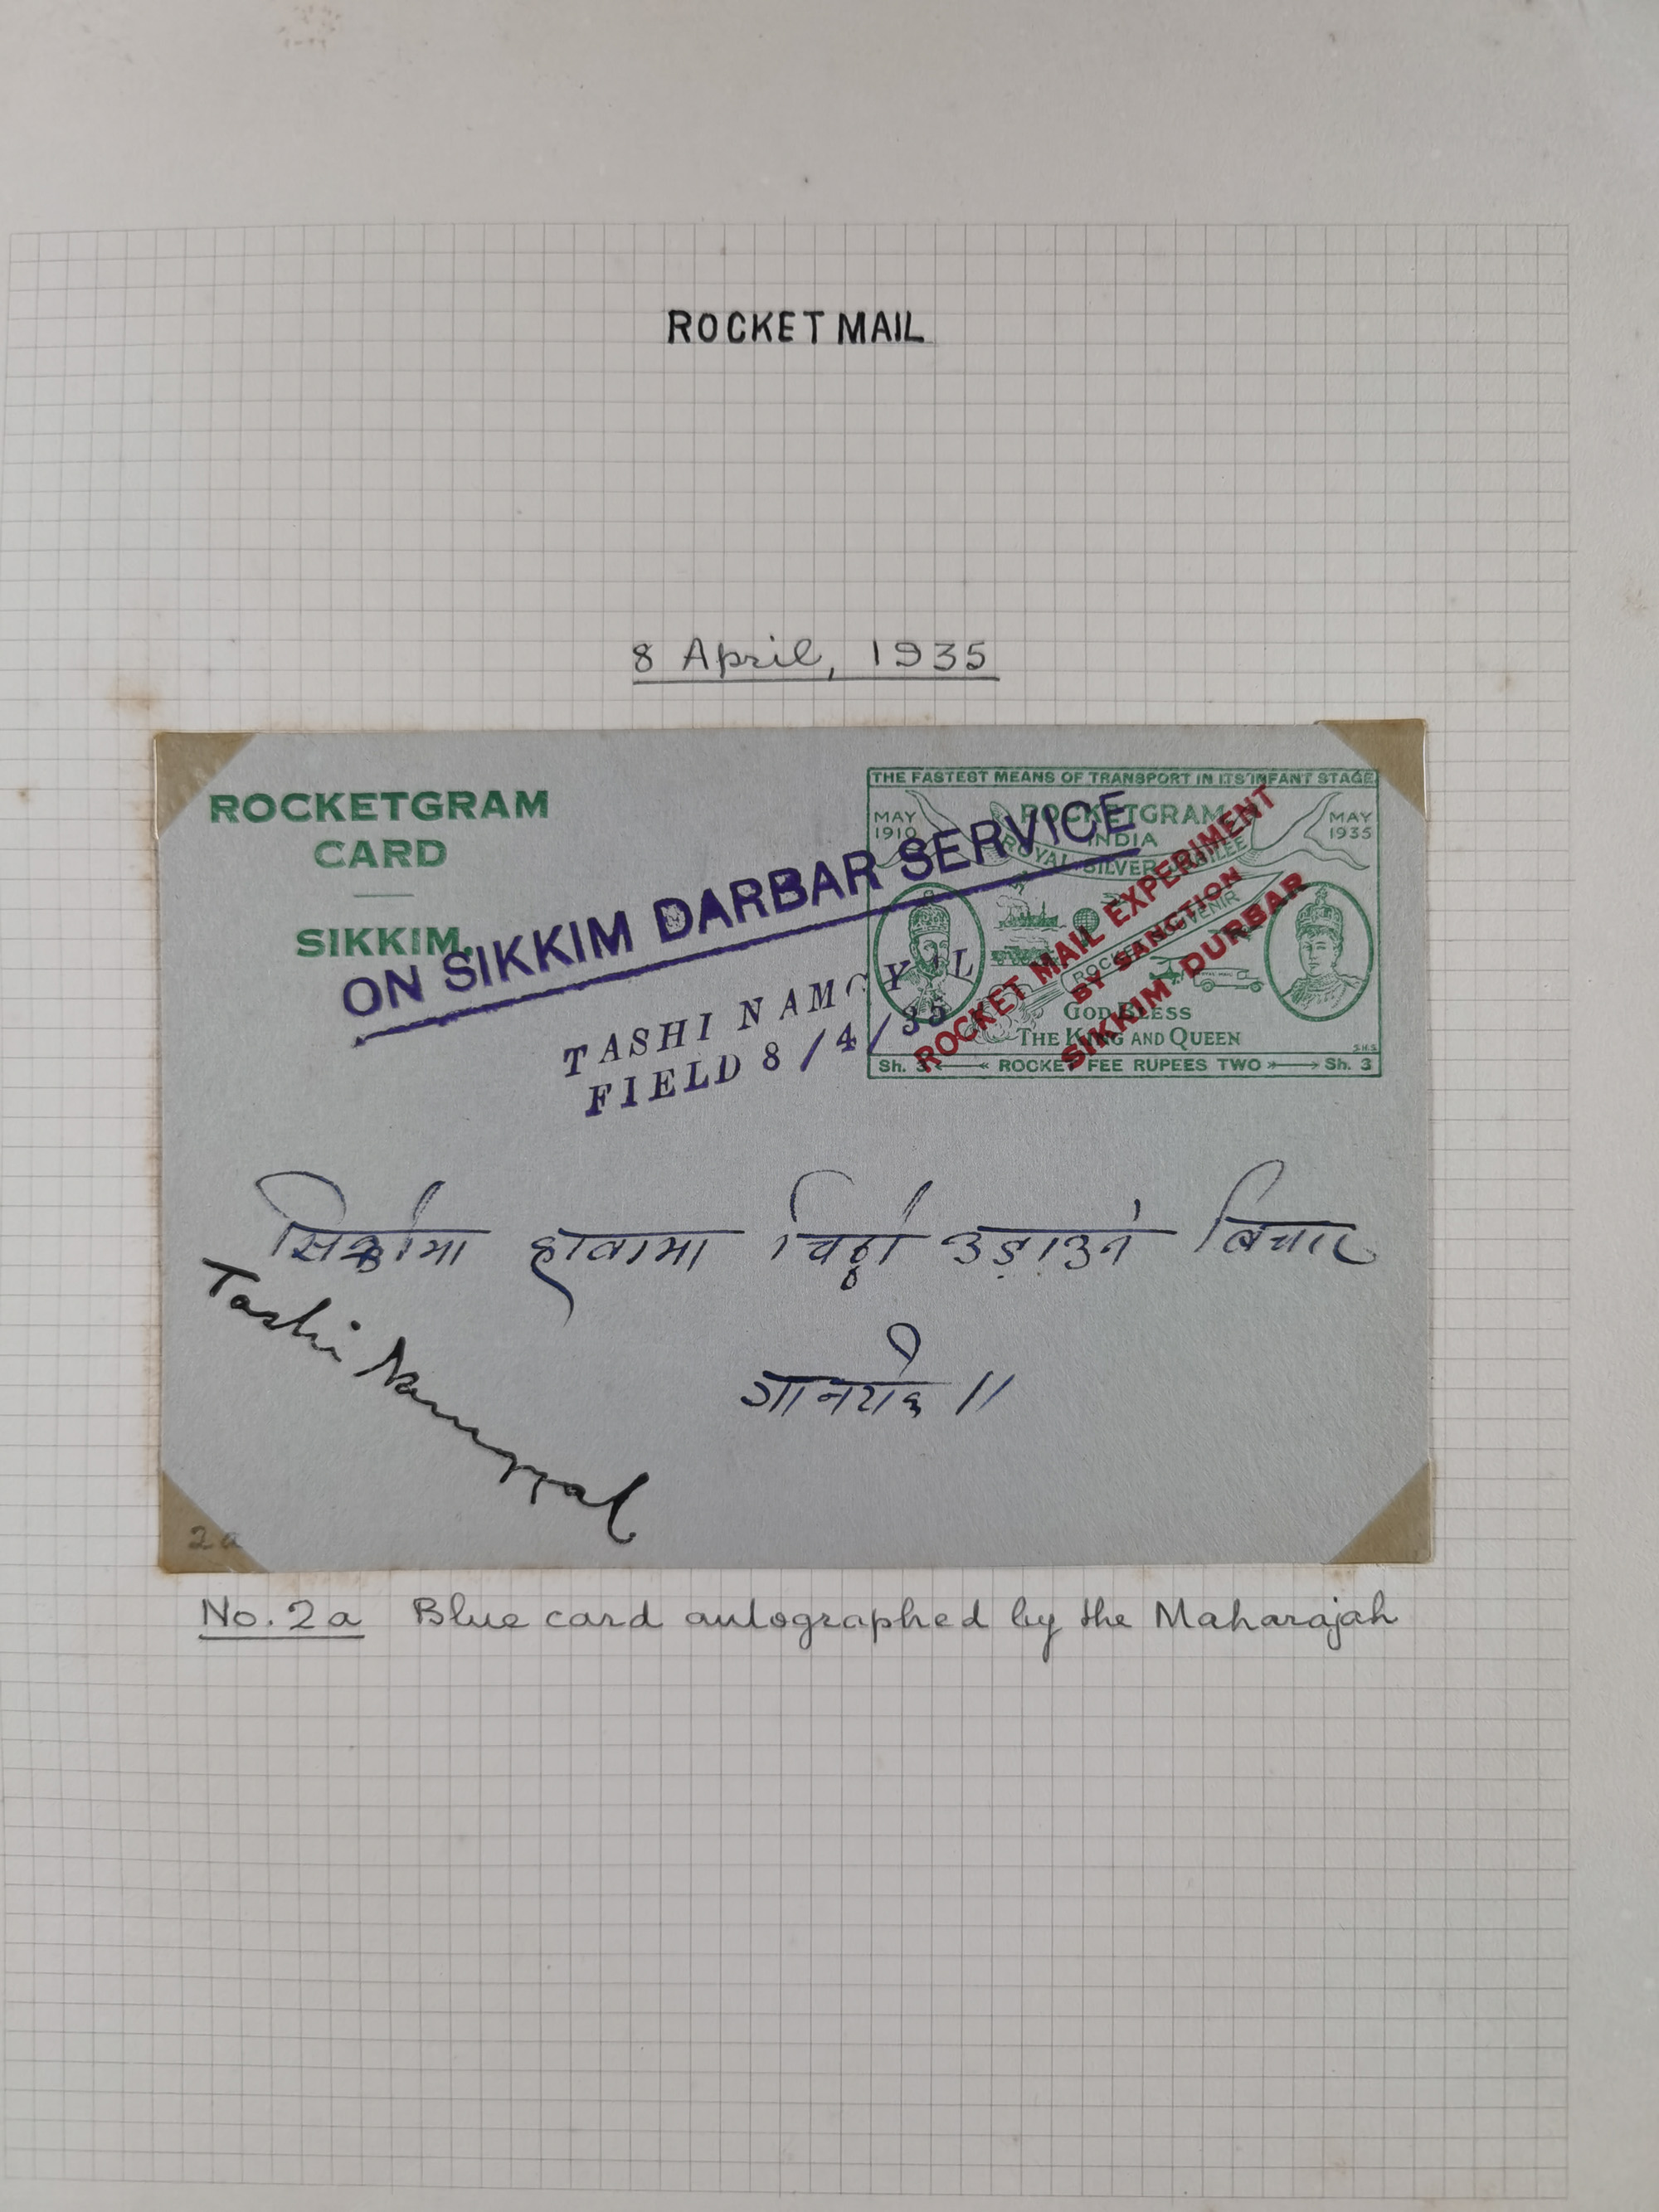 ROCKET MAIL
8 April, 1935
ROCKETGRAM
CARD
SIKKIM.
ON SIKKIM DARBAR SERVICE
TASHI NAMGYAL
FIELD 8/4/35
THE FASTEST MEANS OF TRANSPORT IN ITS INFANT STAGE
MAY
1910
ROCKETGRAM
INDIA
MAY
1935
ROYAL SILVER JUBILEE
ROCKET SOUVENIR
GOD BLESS
THE KING AND QUEEN
S.H.S.
Sh. 3 ROCKET FEE RUPEES TWO Sh. 3
ROCKET MAIL EXPERIMENT
BY SANCTION
SIKKIM DURBAR
हावामा चिठ्ठी उड़ाउने बिचार
Tashi Namgyal
2a
No. 2a Blue card autographed by the Maharajah